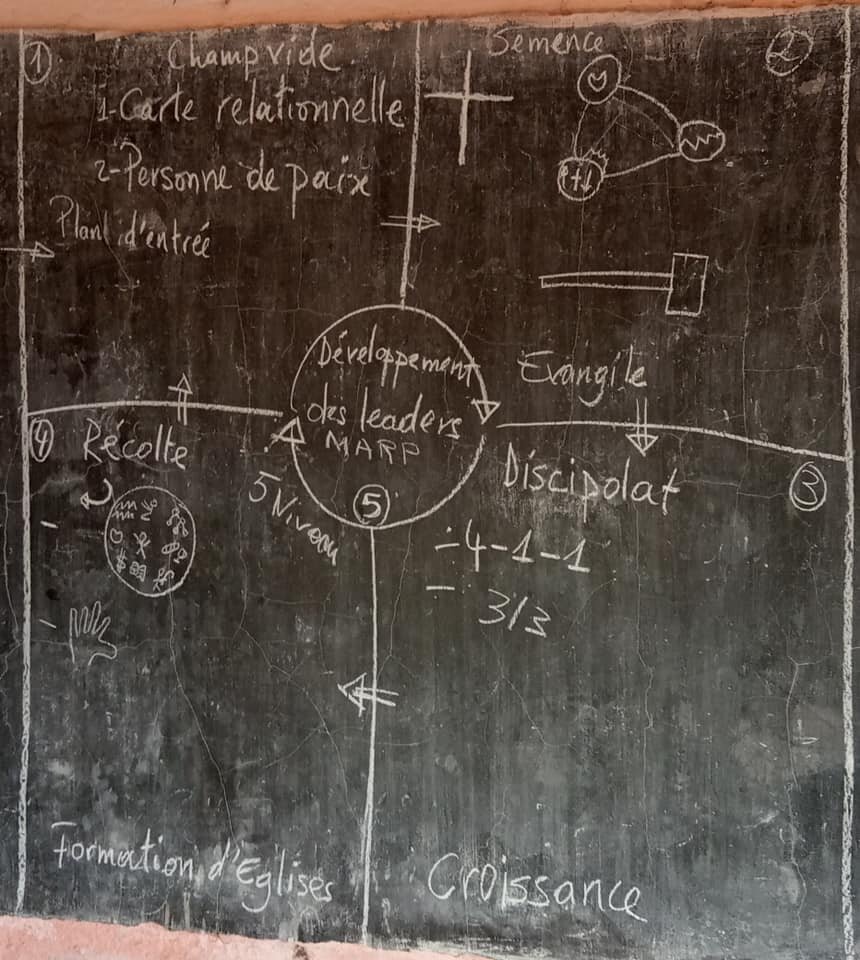 1
Champ vide
1-Carte relationnelle
2-Personne de paix
Plan d'entrée
Semence
2
Evangile
Développement
des leaders
MARP
5
5 Niveau
3
Discipolat
4-1-1
3/3
Croissance
4
Récolte
Formation d'Eglises